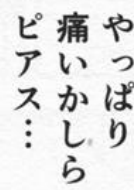 やっぱり
痛いかしら
ピアス…